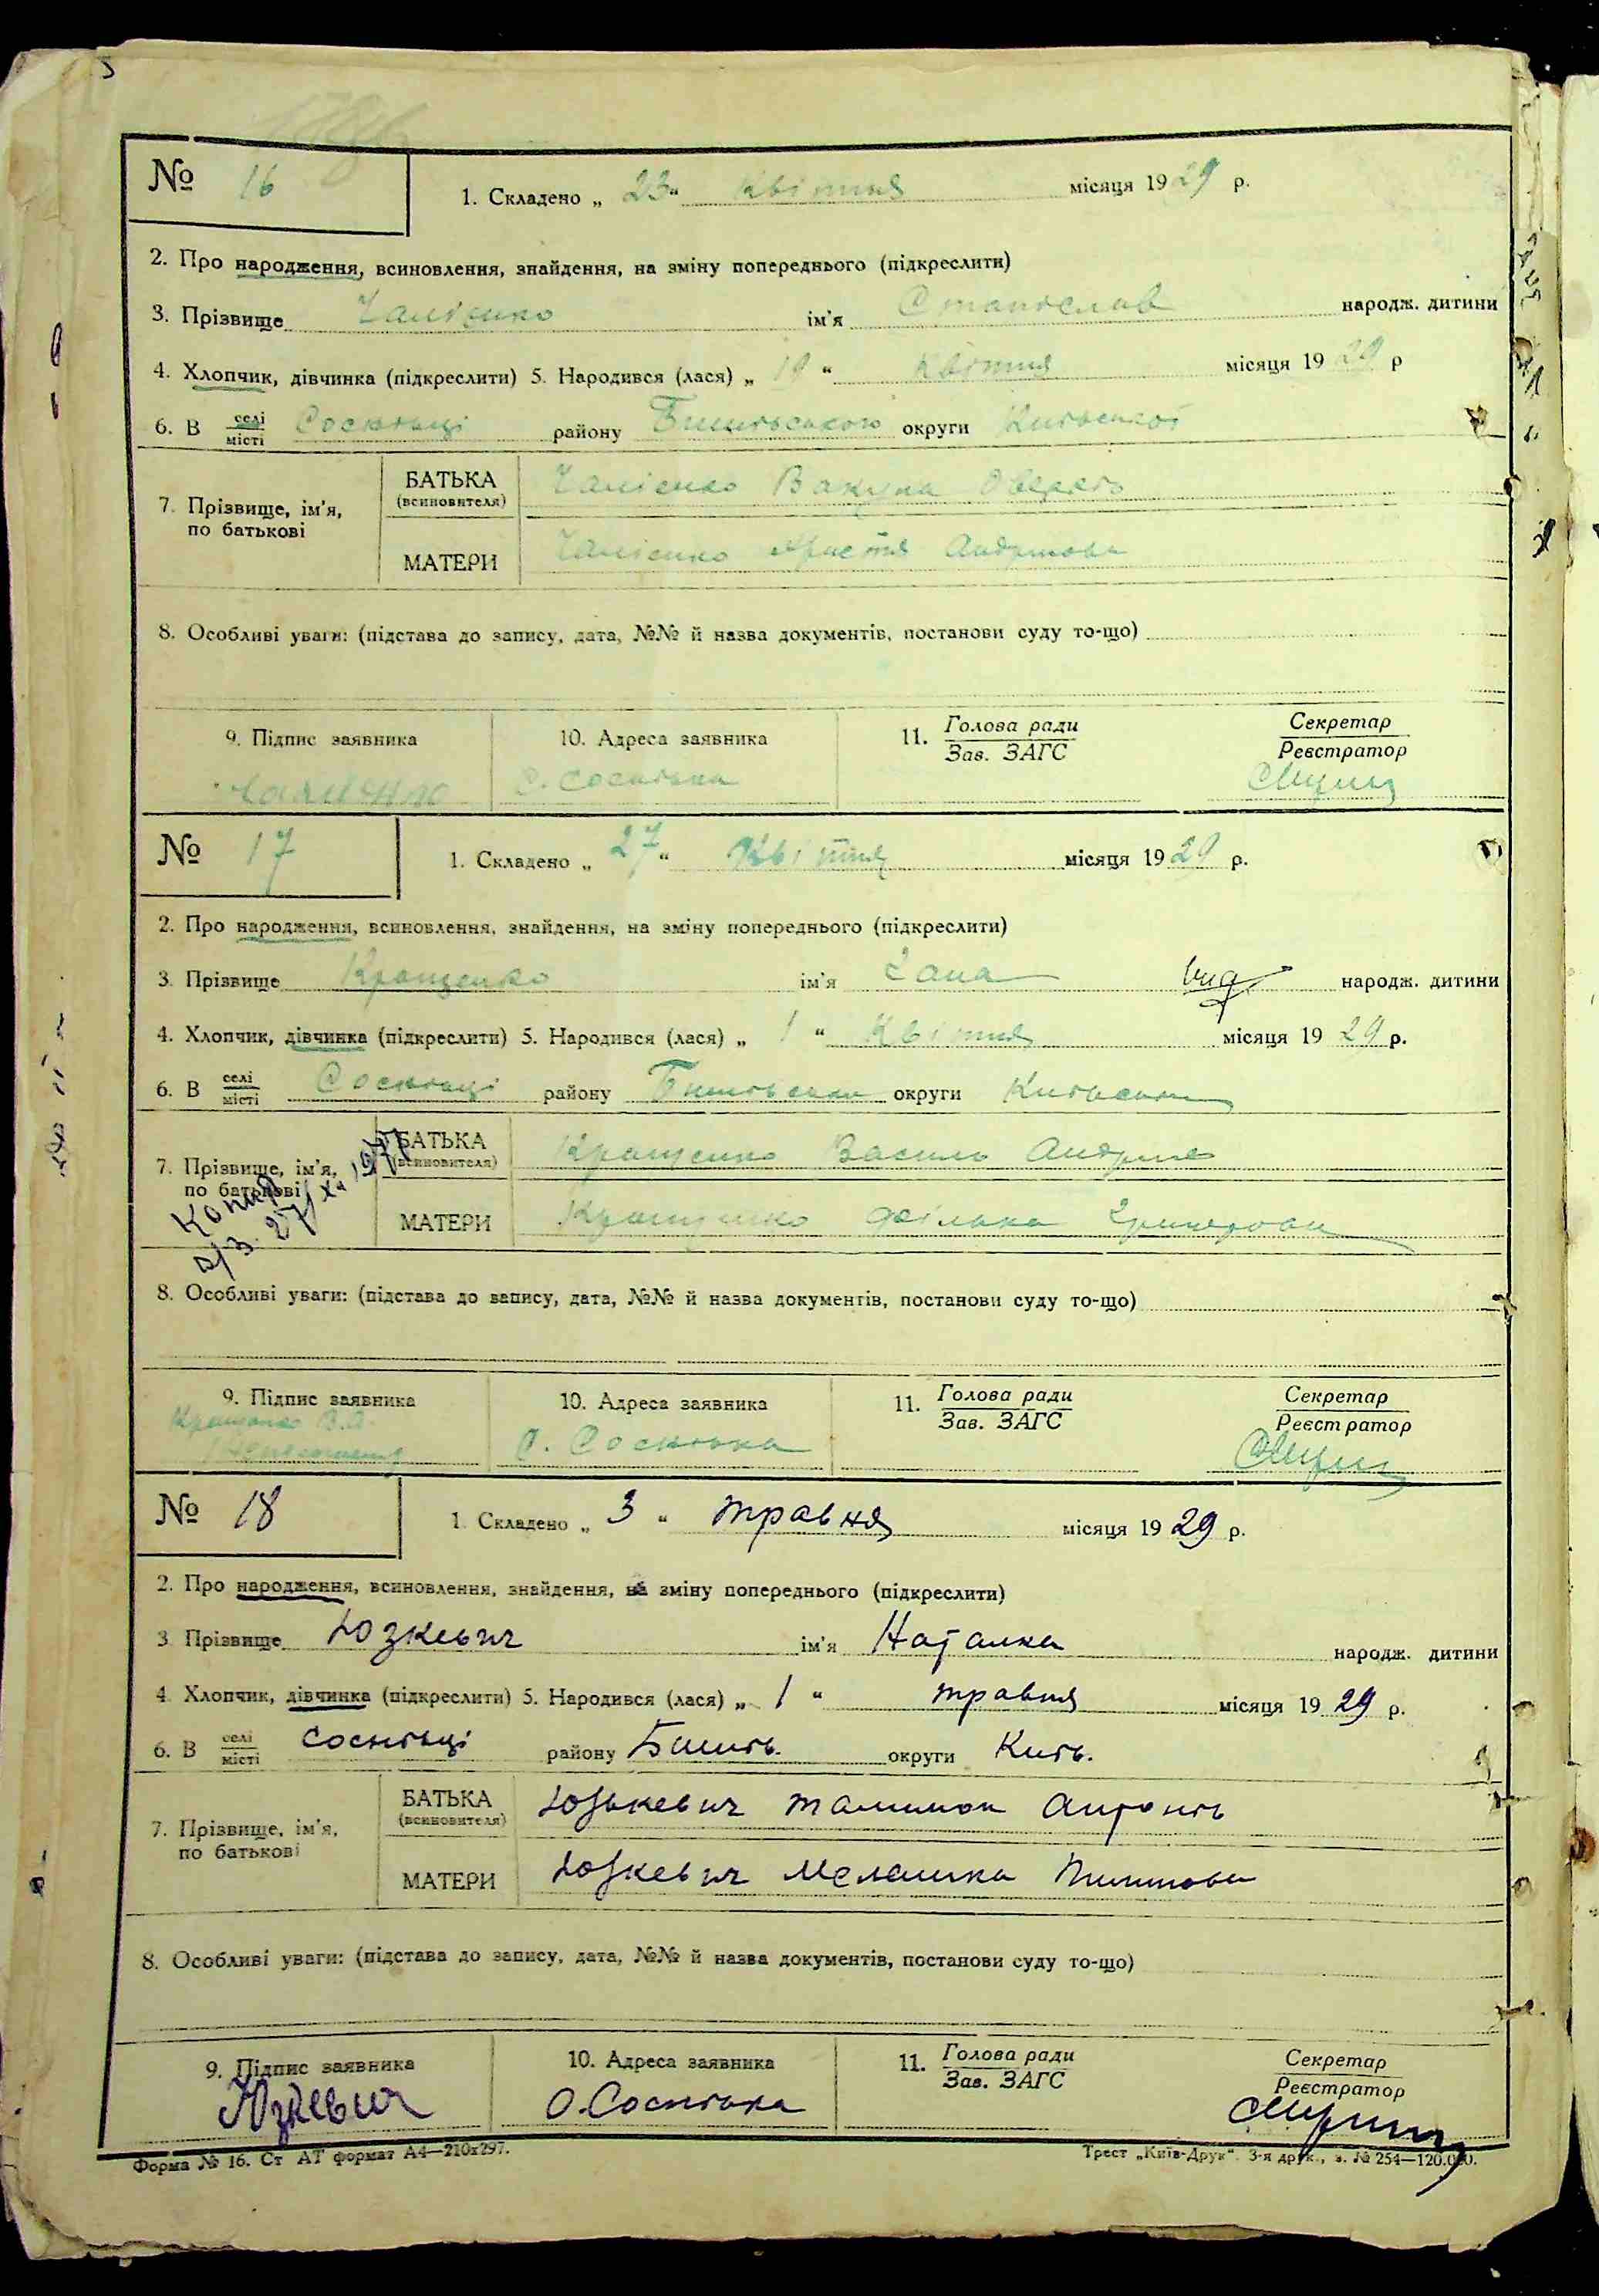 № 16
1. Складено „ 23 “ Квітня місяця 1929 р.
2. Про народження, всиновлення, знайдення, на зміну попереднього (підкреслити)
3. Прізвище ім'я Станіслав народж. дитини
4. Хлопчик, дівчинка (підкреслити) 5. Народився (лася) „ 19 “ Квітня місяця 1929 р
6. В селі місті Соснівці району округи Київської
7. Прізвище, ім'я, по батькові
БАТЬКА (всиновителя)
МАТЕРИ Христя
8. Особливі уваги: (підстава до запису, дата, №№ й назва документів, постанови суду то-що)
9. Підпис заявника 10. Адреса заявника 11. Голова ради Зав. ЗАГС Секретар Реєстратор
С. Соснівка
№ 17
1. Складено „ 27 “ Квітня місяця 1929 р.
2. Про народження, всиновлення, знайдення, на зміну попереднього (підкреслити)
3. Прізвище Кращенко ім'я народж. дитини
4. Хлопчик, дівчинка (підкреслити) 5. Народився (лася) „ 1 “ Квітня місяця 1929 р.
6. В селі місті Соснівці району округи
7. Прізвище, ім'я, по батькові
БАТЬКА (всиновителя) Кращенко Василь
МАТЕРИ Кращенко
8. Особливі уваги: (підстава до запису, дата, №№ й назва документів, постанови суду то-що)
9. Підпис заявника 10. Адреса заявника 11. Голова ради Зав. ЗАГС Секретар Реєстратор
С. Соснівка
№ 18
1. Складено „ 3 “ травня місяця 1929 р.
2. Про народження, всиновлення, знайдення, на зміну попереднього (підкреслити)
3. Прізвище Юзкевич ім'я Наталка народж. дитини
4. Хлопчик, дівчинка (підкреслити) 5. Народився (лася) „ 1 “ травня місяця 1929 р.
6. В селі місті Соснівці району округи Київ.
7. Прізвище, ім'я, по батькові
БАТЬКА (всиновителя) Юзькевич Антонів
МАТЕРИ Юзкевич Мелашка
8. Особливі уваги: (підстава до запису, дата, №№ й назва документів, постанови суду то-що)
9. Підпис заявника 10. Адреса заявника 11. Голова ради Зав. ЗАГС Секретар Реєстратор
Юзкевич С. Соснівка
Форма № 16. Ст АТ формат А4—210х297.
Трест „Київ-Друк“. 3-я друк., з. № 254—120.000.